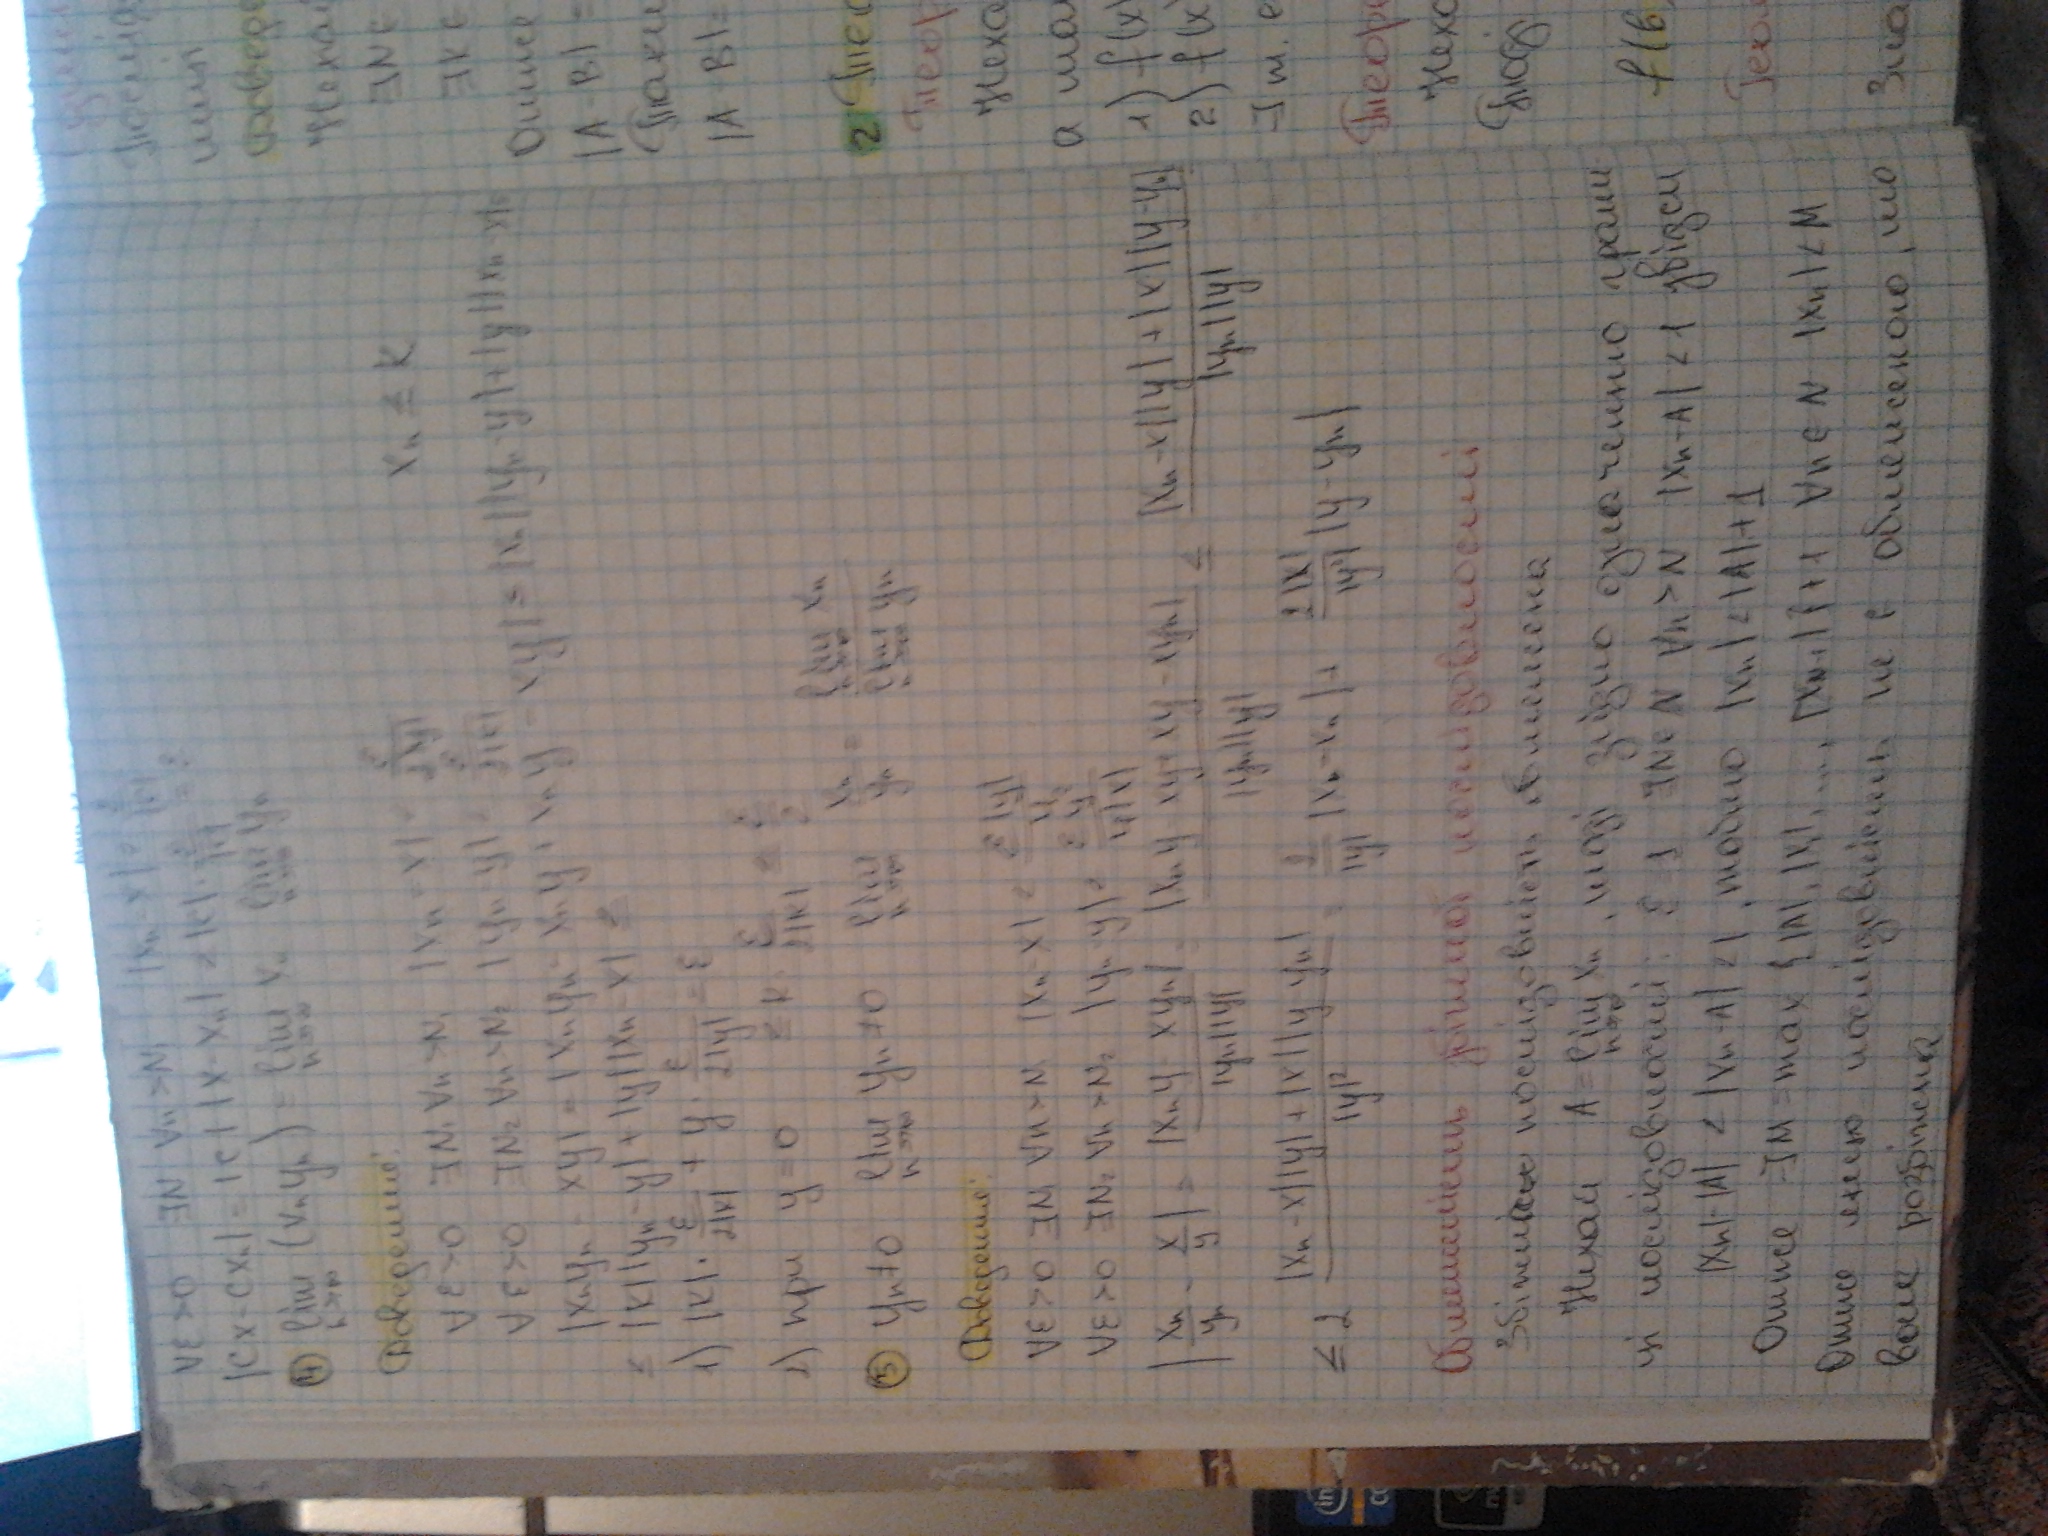 ∀ε>0 ∃N ∀n>N, |xₙ-x| < ε/|c|
|cx-cxₙ| = |c| |x-xₙ| < |c|·ε/|c| = ε
④ lim n→∞ (xₙyₙ) = lim n→∞ xₙ lim n→∞ yₙ
Доведення:
∀ε>0 ∃N₁ ∀n>N₁ |xₙ-x| < ε/2|y| xₙ ≤ K
∀ε>0 ∃N₂ ∀n>N₂ |yₙ-y| < ε/2|K|
|xₙyₙ - xy| = |xₙyₙ - xₙy + xₙy - xy| ≤ |xₙ||yₙ-y|+|y||xₙ-x| ≤
≤ |K||yₙ-y|+|y||xₙ-x| ≤
1) |K|·ε/2|K| + y·ε/2|y| = ε
2) при y=0 ≤ K·ε/2|K| ≤ ε/2
⑤ yₙ≠0 lim n→∞ yₙ≠0 lim n→∞ xₙ/yₙ = lim n→∞ xₙ / lim n→∞ yₙ
Доведення:
∀ε>0 ∃N₁ ∀n>N₁ |xₙ-x| < ε|y|/4
∀ε>0 ∃N₂ ∀n>N₂ |yₙ-y| < εy²/4|x|
|xₙ/yₙ - x/y| = |xₙy - xyₙ|/|yₙ||y| = |xₙy - xy+xy - xyₙ|/|yₙ||y| ≤ |xₙ-x||y|+|x||y-yₙ|/|yₙ||y|
≤ 2 |xₙ-x||y|+|x||y-yₙ|/|y|² = 2/|y| |xₙ-xₙ|+ 2|x|/|y²| |y-yₙ|
Обмеженість збіжної послідовності
Збіжна послідовність обмежена
Нехай A = lim n→∞ xₙ, тоді згідно означенню грани
ці послідовності: ε=1 ∃N∈N ∀n>N |xₙ-A|<1 звідси
|xₙ|-|A| < |xₙ-A| < 1, тобто |xₙ|<|A|+1
Отже ∃M = max {|A|, |x₁|, ..., |xₙ₋₁|}+1 ∀n∈N |xₙ|<M
Отже якщо послідовність не є обмеженою, то
вона розбіжна
Нехай
∃N∈
∃K∈
Отже
|A-B| =
Таки
|A-B| =
2 Тео
Теор
Неха
а та
1) f(x)
2) f(x)
Теор
Неха
Тоді
f(b
Теор
Зна